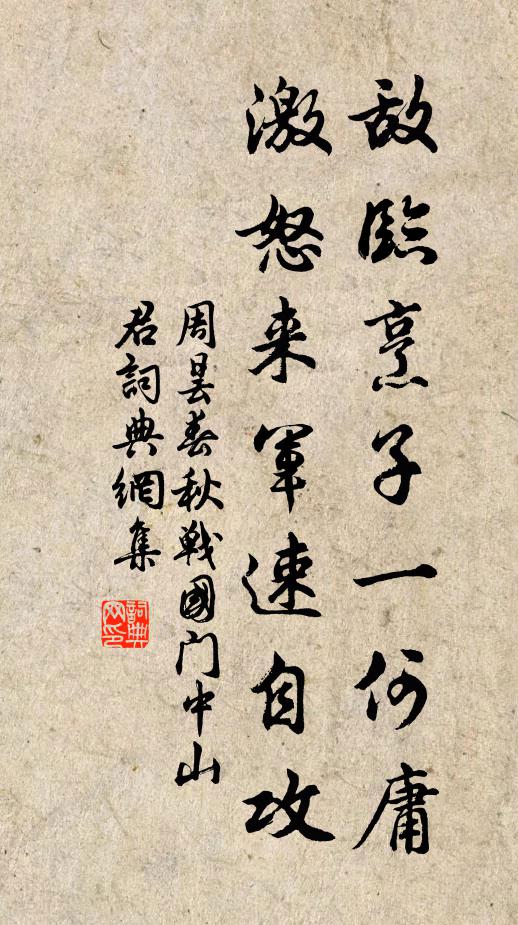 敌临烹子一何庸
激怒来军速自攻
周昙春秋戰國门中山
君詞典網集
詞典
网印